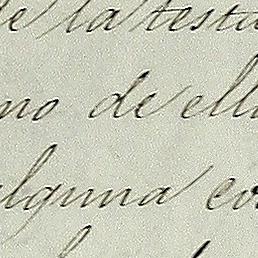 de la testa
no de ella
alguna co